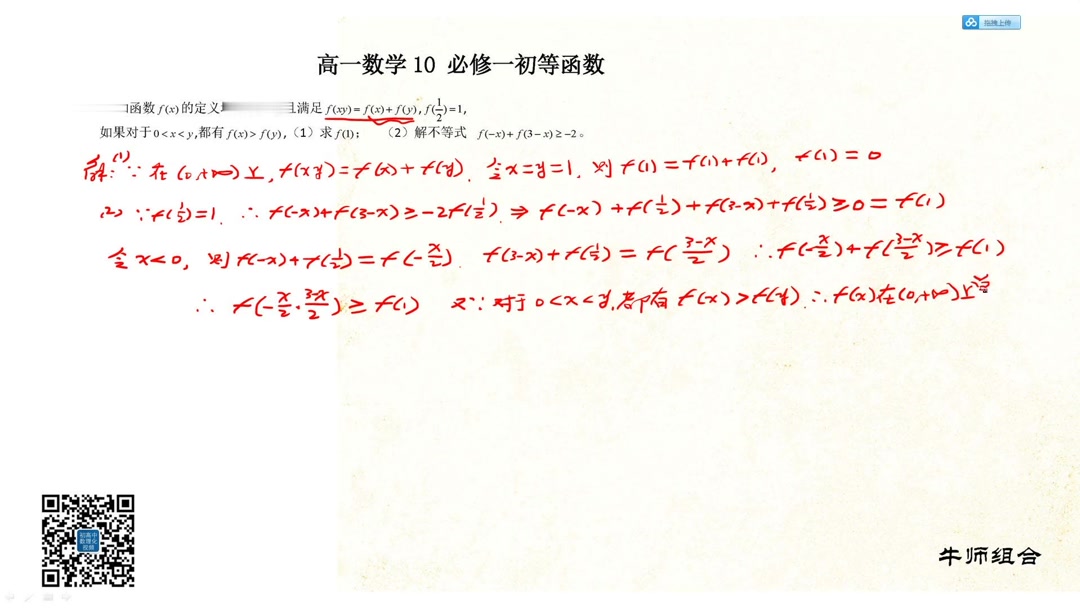 拖拽上传
高一数学10 必修一初等函数
函数 f(x) 的定义 且满足 f(xy)=f(x)+f(y), f(1/2)=1,
如果对于 0<x<y,都有 f(x)>f(y),（1）求 f(1); （2）解不等式 f(-x)+f(3-x)≥-2。
解:(1) ∵ 在 (0,+∞) 上, f(xy)=f(x)+f(y). 令x=y=1. 则 f(1)=f(1)+f(1), f(1)=0
(2) ∵f(1/2)=1. ∴ f(-x)+f(3-x)≥-2f(1/2). ⇒ f(-x)+f(1/2)+f(3-x)+f(1/2)≥0=f(1)
令 x<0, 则 f(-x)+f(1/2)=f(-x/2). f(3-x)+f(1/2)=f(3-x/2) ∴f(-x/2)+f(3-x/2)≥f(1)
∴ f(-x/2·3-x/2)≥f(1) 又∵对于 0<x<y,都有 f(x)>f(y). ∴f(x)在(0,+∞)上
初高中
数理化
视频
牛师组合